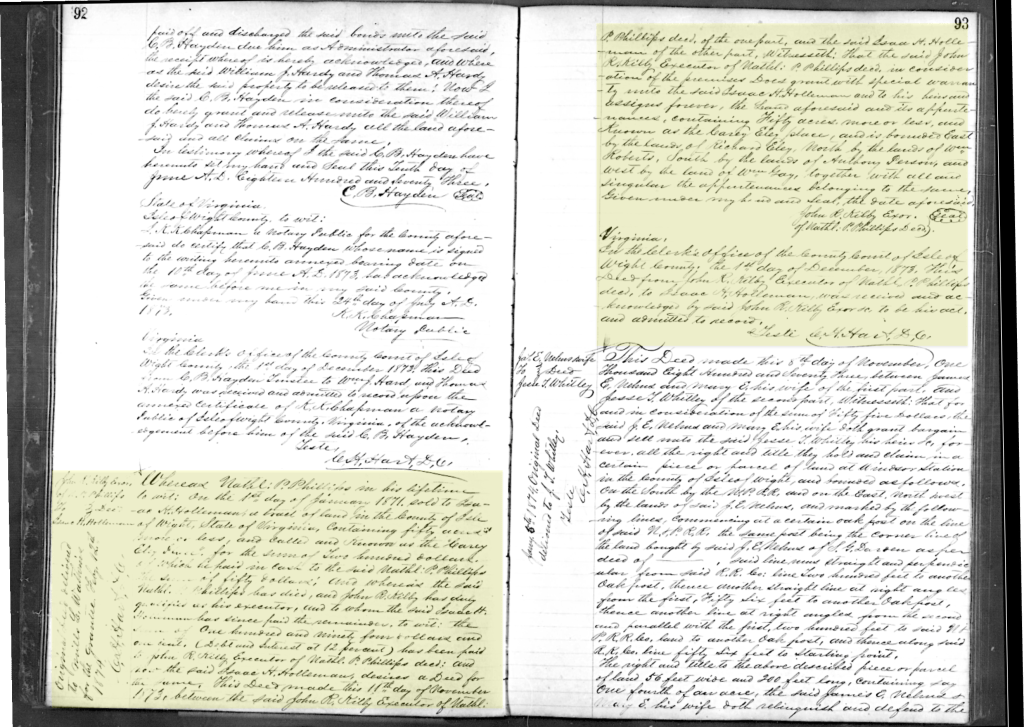 92
paid off and discharged the said bonds unto the said
C. B. Hayden due him as Administrator aforesaid,
the receipt whereof is hereby acknowledged, and where
as the said William J. Hardy and Thomas A. Hardy
desire the said property to be released to them; Now I
the said C. B. Hayden in consideration thereof
do hereby grant and release unto the said William
J. Hardy and Thomas A. Hardy all the land afore-
said and all claims on the same.
In testimony whereof I the said C. B. Hayden have
hereunto set my hand and seal this Tenth day of
June A.D. Eighteen Hundred and Seventy Three.
C. B. Hayden Seal
State of Virginia
Isle of Wight County, to wit:
I, R. K. Chapman a Notary Public for the County afore-
said do certify that C. B. Hayden whose name is signed
to the writing hereunto annexed bearing date on
the 10th day of June A.D. 1873, has acknowledged
the same before me in my said County.
Given under my hand this 24th day of July A.D.
1873.
R. K. Chapman
Notary Public
Virginia
In the Clerk's Office of the County Court of Isle of
Wight County, the 1st day of December 1873. This Deed
from C. B. Hayden to Wm J. Hardy and Thomas
A. Hardy was received and admitted to record upon the
annexed certificate of R. K. Chapman a Notary
Public of Isle of Wight County, Virginia, of the acknowl-
edgement before him of the said C. B. Hayden.
Teste,
C. A. Hart, D.C.
Whereas Nathl. P. Phillips in his lifetime
to wit: On the day of January 1871, sold to Isa-
ac H. Holleman, a tract of land in the County of Isle
of Wight, State of Virginia, containing fifty acres
more or less, and called and known as the Carey
Eley place, for the sum of Two hundred dollars,
of which he paid in cash to the said Nathl. P. Phillips
the sum of fifty dollars; And whereas the said
Nathl. P. Phillips has died, and John R. Kilby has duly
qualified as his executor, and to whom the said Isaac H.
Holleman has since paid the remainder, to wit: the
sum of One hundred and ninety four dollars and
one cent, (Debt and Interest at 12 percent) has been paid
John R. Kilby Executor of Nathl. P. Phillips decd: and
the said Isaac H. Holleman, desires a Deed for
the same, This Deed made this 11th day of November
1873, between the said John R. Kilby Executor of Nathl:
John R. Kilby Exor.
of N. P. Phillips
To Deed
Isaac H. Holleman
Original deed delivered
to
for the grantee
1874
C. A. Hart D.C.
93
P. Phillips decd, of the one part, and the said Isaac H. Holle-
man of the other part, Witnesseth: That the said John
R. Kilby Executor of Nathl: P. Phillips decd. in consider-
ation of the premises Does grant with special warran-
ty unto the said Isaac H. Holleman and to his heirs and
assigns forever, the land aforesaid and its appurte-
nances, containing Fifty acres more or less, and
known as the Carey Eley place, and is bounded East
by the lands of Richard Eley, North by the lands of Wm
Roberts, South by the lands of Anthony Person, and
West by the land of Wm Gay, together with all and
singular the appurtenances belonging to the same,
Given under my hand and seal, the date aforesaid.
John R. Kilby Exor. Seal
of Nathl. P. Phillips Decd.
Virginia,
In the Clerk's Office of the County Court of Isle of
Wight County, the 1st day of December, 1873. This
Deed from John R. Kilby Executor of Nathl. P. Phillips
decd, to Isaac H. Holleman, was received and ac-
knowledged by said John R. Kilby Exor to be his act,
and admitted to record.
Teste C. A. Hart, D.C.
This Deed made this 8th day of November, One
Thousand Eight Hundred and Seventy Three between James
E. Nelms and Mary E. his wife of the first part, and
Jesse T. Whitley of the second part, Witnesseth: That for
and in consideration of the sum of Fifty five dollars the
said J. E. Nelms and Mary E. his wife doth grant bargain
and sell unto the said Jesse T. Whitley, his heirs &c, for
ever, all the right and title they hold and claim in a
certain piece or parcel of land at Windsor Station
in the County of Isle of Wight, and bounded as follows,
On the South by the N.P.R.R. and on the East, North West
by the lands of said J. E. Nelms, and marked by the follow
ing lines, commencing at a certain oak post on the line
of said N. & P. R. R. the same post being the corner line of
the land bought by said J. E. Nelms of as per
deed of said line runs straight and perpendic
ular from said R.R. Co: line Two hundred feet to another
Oak post, thence another straight line at right angles
from the first, Fifty six feet to another Oak post,
thence another line at right angles from the second
and parallel with the first, two hundred feet to said N &
P. R. R. Co. land to another oak post, and thence along said
R. R. Co. line fifty six feet to Starting point.
The right and title to the above described piece or parcel
of land, 56 feet wide and 200 feet long, containing say
One fourth of an acre, the said James E. Nelms &
Mary E. his wife doth relinquish and defend to the
Jas. E. Nelms & wife
To Deed
Jesse T. Whitley
1874 Original Deed
delivered to J. T. Whitley.
Teste
C. A. Hart D.C.